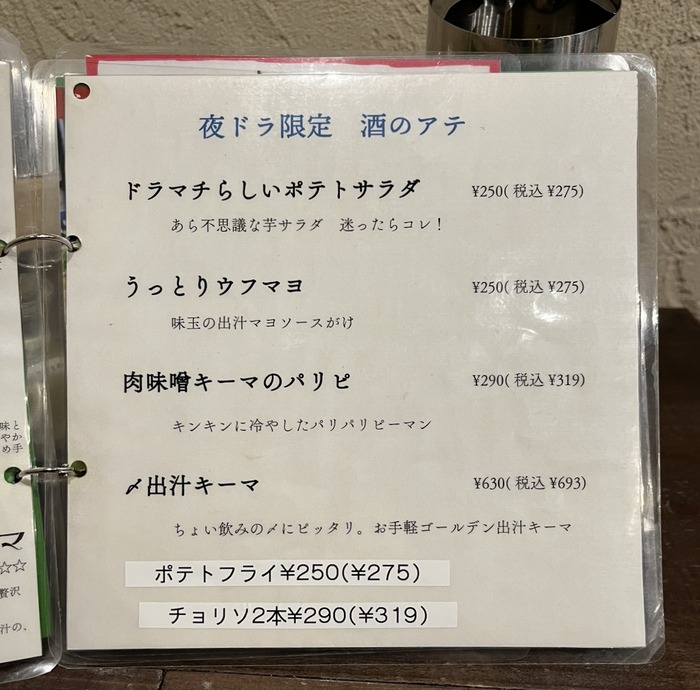 夜ドラ限定　酒のアテ
ドラマチらしいポテトサラダ ¥250( 税込 ¥275)
あら不思議な芋サラダ　迷ったらコレ！
うっとりウフマヨ ¥250( 税込 ¥275)
味玉の出汁マヨソースがけ
肉味噌キーマのパリピ ¥290( 税込 ¥319)
キンキンに冷やしたパリパリピーマン
〆出汁キーマ ¥630( 税込 ¥693)
ちょい飲みの〆にピッタリ。お手軽ゴールデン出汁キーマ
ポテトフライ¥250(¥275)
チョリソ2本¥290(¥319)
味と
やか
め手
マ
☆☆
贅沢
汁の、